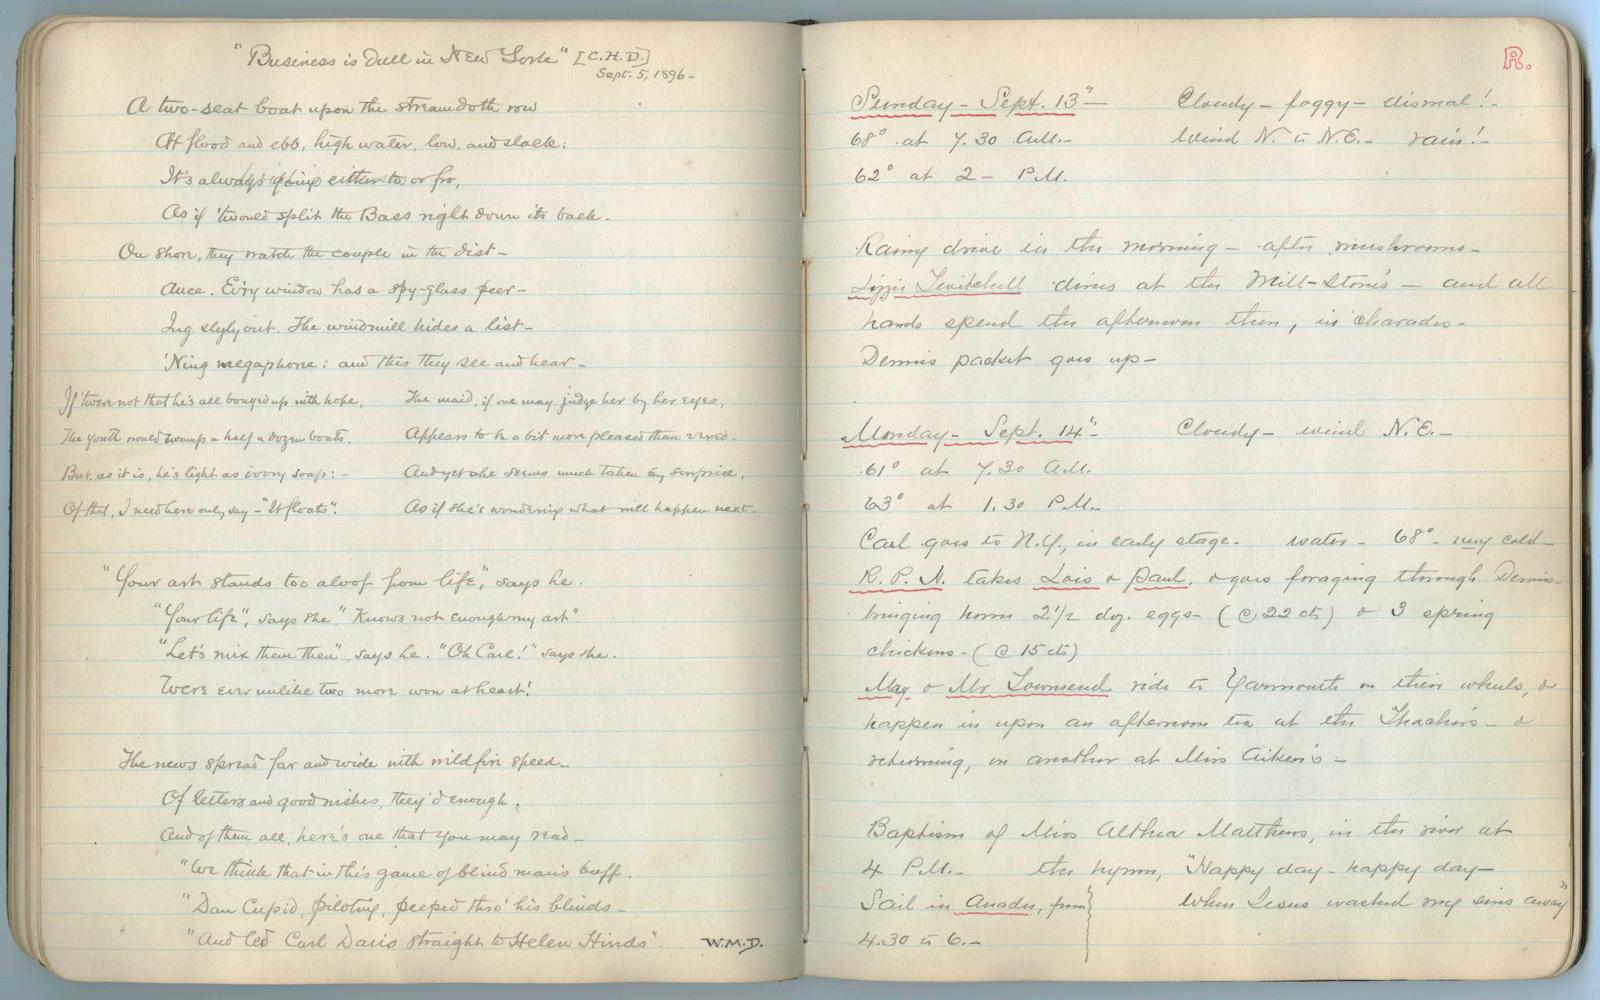 "Business is Dull in New York" [C.H.D.]
Sept. 5, 1896-
A two-seat boat upon the stream doth row
At flood and ebb, high water, low, and slack:
It's always going either to or fro,
As if 'twould split the Bass right down its back.
On shore, they watch the couple in the dist-
Ance. Ev'ry window has a spy-glass peer-
Ing slyly out. The windmill hides a list-
'Ning megaphone: and this they see and hear-
If 'twere not that he's all bouyed up with hope,
The youth would swamp a half a dozen boats.
But as it is, he's light as ivory soap:-
Of that, I need here only say-"It floats".
The maid, if one may judge her by her eyes,
Appears to be a bit more pleased than vexed-
And yet she seems much taken by surprise,
As if she's wondering what will happen next.
"Your art stands too aloof from life," says he.
"Your life", says she, "Knows not enough my art".
"Let's mix them then", says he. "Oh Carl!" says she.
Were ever unlike two more won at heart!
The news spread far and wide with wildfire speed-
Of letters and good wishes, they'd enough.
And of them all, here's one that you may read-
"We think that in this game of blind man's buff.
"Dan Cupid, piloting, peeped thro' his blinds-
"And led Carl Davis straight to Helen Hinds".
W.M.D.
R.
Sunday- Sept. 13"- Cloudy- foggy- dismal!-
68° at 7.30 A.M.- Wind N. to N.E.- rain!-
62° at 2- P.M.
Rainy drive in the morning- after mushrooms-
Lizzie Twitchell dines at the Mill-Stone's- and all
hands spend the afternoon there, in charades-
Dennis packet goes up-
Monday- Sept. 14"- Cloudy- wind N.E.-
61° at 7.30 A.M.
63° at 1.30 P.M.-
Carl goes to N.Y., in early stage- water- 68°- very cold-
R.P.N. takes Lois & Paul, & goes foraging through Dennis-
bringing home 2 1/2 doz. eggs- (@ 22 cts) & 3 spring
chickens-(@ 15 cts)
May & Mr Townsend ride to Yarmouth on their wheels, &
happen in upon an afternoon tea at the Thacher's- &
returning, on another at Miss Aiken's-
Baptism of Miss Althea Matthews, in the river at
4 P.M.- the hymn, "Happy day- happy day-
Sail in Anadu, from When Jesus washed my sins away"
4.30 to 6.-